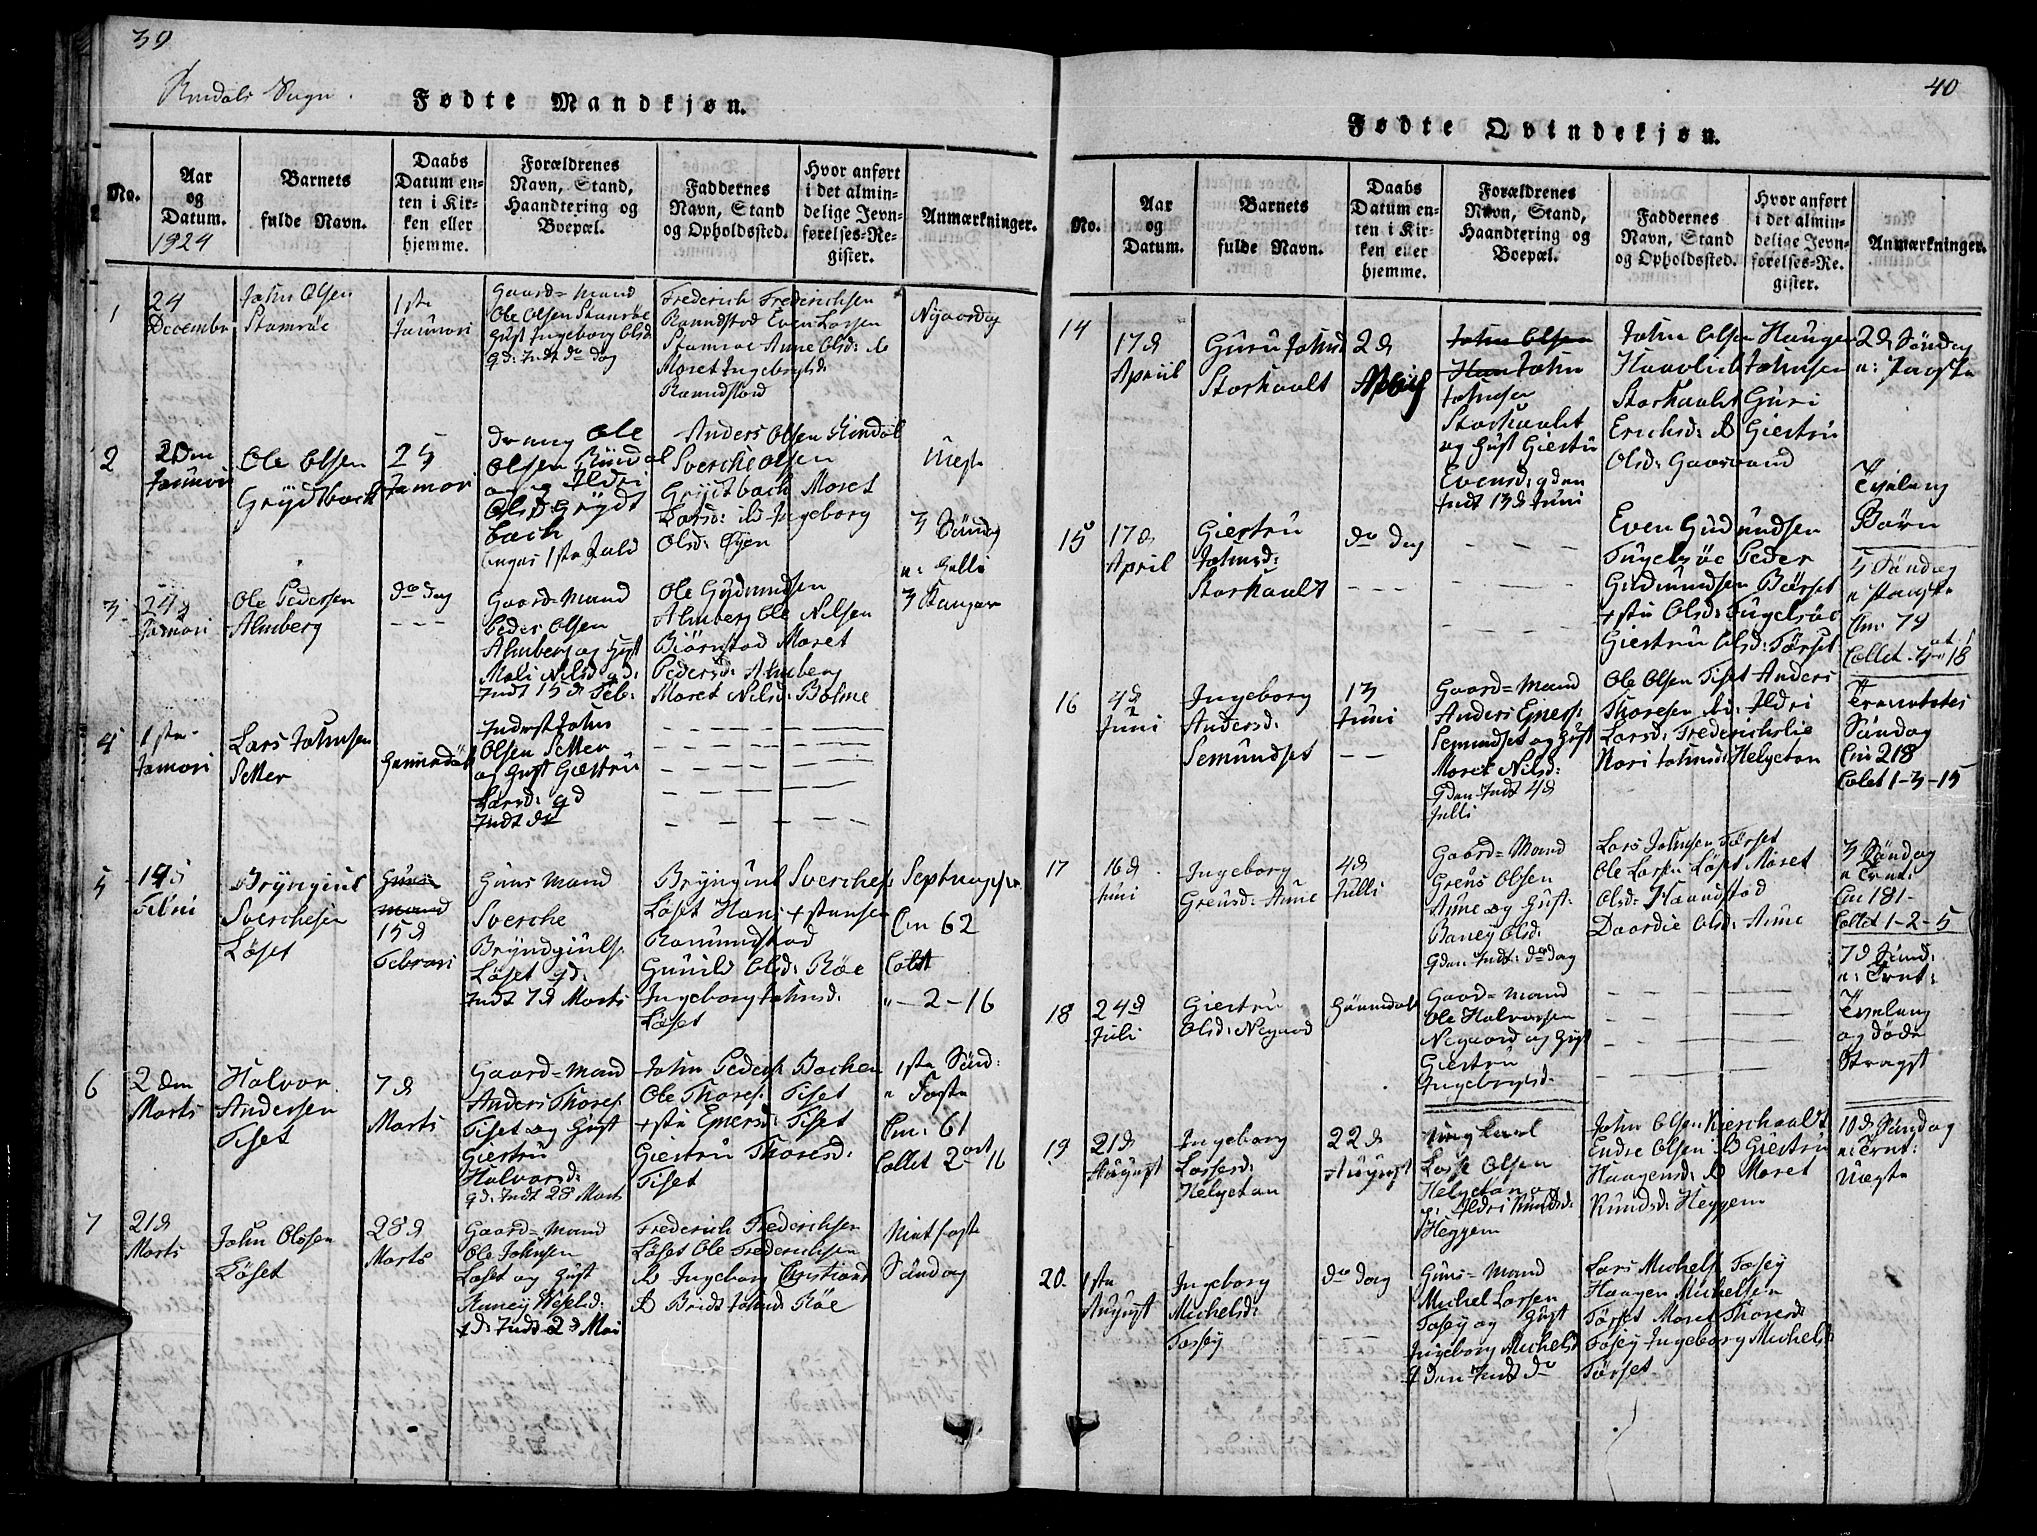 39
Rindals Sogn.
Fødte Mandkjøn.
No.
Aar
og
Datum.
1924
Barnets
fulde Navn.
Daabs
Datum en-
ten i Kir-
ken eller
hjemme.
Forældrenes
Navn, Stand,
Haandtering og
Boepæl.
Faddernes
Navn, Stand
og Opholdssted.
Hvor anført
i det almin-
delige Jevn-
førelses-Re-
gister.
Anmærkninger.
1
24
Decembr
John Olsen
Stamsøe
1ste
Januari
Gaard=Mand
Ole Olsen Stamsøe
Hust Ingeborg Olsd:
gd: Indt do dag
Frederich Frederichsen
Romundstad Even Larsen
Stamsøe Anne Olsd:
Moret Ingebrigtsd:
Romundstad
Nyaarsdag
2
2den
Januari
Ole Olsen
Grydtbach
25
Januari
Dreng Ole
Olsen Rindal
og Ildri
Olsd Grydt
bach
begges 1ste Fald
Anders Olsen Rindal
Sverche Olsen
Grydtbach Moret
Larsd: Ingeborg
Olsd: Øyen
Uægte
3 Søndag
3
24d
Januari
Ole Pedersen
Almberg
do dag
- - -
Gaard=Mand
Peder Olsen
Almberg og Hust
Mali Nilsd gd:
Indt 15d Feb:
Ole Gudmundsen
Almberg Ole Nilsen
Biørnstad Moret
Pedersd: Almberg
Moret Nilsd: Bolme
4
1ste
Januari
Lars Johnsen
Setter
Hiemdøbt
Inderst John
Olsen Setter
og Hust Giertru
Larsd: gd
Indt do
- - - - -
5
19d
Febri
Bryngiul
Sverchesen
Løset
15d
Febrari
Huus Mand
Sverche
Bryndgiuls
Løset gd:
Indt 7d Marts
Bryngiul Sverches:
Løset Hans +stensen
Romundstad
Gunild Olsd: Røe
Ingeborg Johnsd:
Løset
Cm 62
Colet
"-2-16
6
2den
Marts
Halvor
Andersen
Tiset
7d
Marts
Gaard=Mand
Anders Thores:
Tiset og Hust
Giertru
Halvorsd:
gd: Indt 28 Marts
John Peders Bachen
Ole Thores: Tiset
+sti Eners: Tiset
Giertru Thoresd:
Tiset
1ste Sønd:
i Faste
Cm: 61
Collet 2 ort 16
7
21d
Marts
John Olssen
Løset
28d
Marts
Gaard=Mand
Ole Johnsen
Løset og Hust
gd: Indt 2d Mai
Frederich Frederichsen
Løset Ole Frederichsen
Ingeborg Christiansd
Brit Johnsd: Røe
Midfaste
Søndag
40
Fødte Qvindekjøn.
No.
Aar
og
Datum.
Barnets
fulde Navn.
Daabs
Datum en-
ten i Kir-
ken eller
hjemme.
Forældrenes
Navn, Stand,
Haandtering og
Boepæl.
Faddernes
Navn, Stand
og Opholdssted.
Hvor anført
i det almin-
delige Jevn-
førelses-Re-
gister.
Anmærkninger.
14
17d
April
Guru Johnsd
Storhaalt
2d
John Olsen
John
Johnsen
Storhaalt
og Hust Giertru
Evensd: gden
Indt 13d Juni
John Olsen Haugen
Haavlid Johnsen
Storhaalt Guri
Erichsd: Giertru
Olsd: Gaasvand
2d Søndag
15
17d
April
Giertru
Johnsd:
Storhaalt
do dag
- - -
Even Gudmundsen
Fugelsøe Peder
Gudmundsen Børset
+sti Olsd: Fugelsøe
Giertru Olsd: Tørset
Tvilling
Børn
5 Søndag
Cm: 79
Collet
16
4d
Juni
Ingeborg
Andersd:
Semundset
13
Juni
- -
Gaard=Mand
Anders Eners:
Semundset og Hust
Moret Nilsd:
gden Indt 4d
Julli
Ole Olsen Tiset Anders
Thoresen Ildri
Larsd: Frederichslie
Mari Johnsd: Helgeton
Trenetetes
Søndag
Cm 218
Colet 1-3-15
17
16d
Juni
Ingeborg
Greusd: Aune
4d
Julli
Gaard=Mand
Greus Olsen
Aune og Hust:
Olsd:
gden Indt: do dag
Lars Johnsen Tørset
Ole Larsen Løset Moret
Olsd: Haanstad
Daardie Olsd: Aune
3 Søndag
e Trnt:
Cm 181-
Collet 1-2-5
18
24d
Juli
Giertru
Olsd: Negaard
Hiemdøbt
Gaard=Mand
Ole Halvorsen
Negaard og Hust
Giertru
Ingebrigtsd:
- - - -
7d Sønd:
e: Trnt:
Tvilling
og døde
Stragst
19
21d
August
Ingeborg
Lassesd:
Helgeton
22d
August
Ung karl
Lasse Olsen
Helgeton og
p: Ildri Knudsd:
Heggem
John Olsen Kierchaalt
Endre Olsen Giertru
Haagensd: Moret
Knudsd: Heggem
10d Søndag
e: Trnt:
Uægte
20.
1ste
August
Ingeborg
Michelsd:
Fosey
do dag
- - -
Huus=Mand
Michel Larsen
Fosey og Hust
Ingeborg Michelsd
gden Indt do
Lars Michels Fosey
Haagen Michelsen
Tørset Moret Thoresd:
Fosey Ingeborg Michelsd:
Tørset